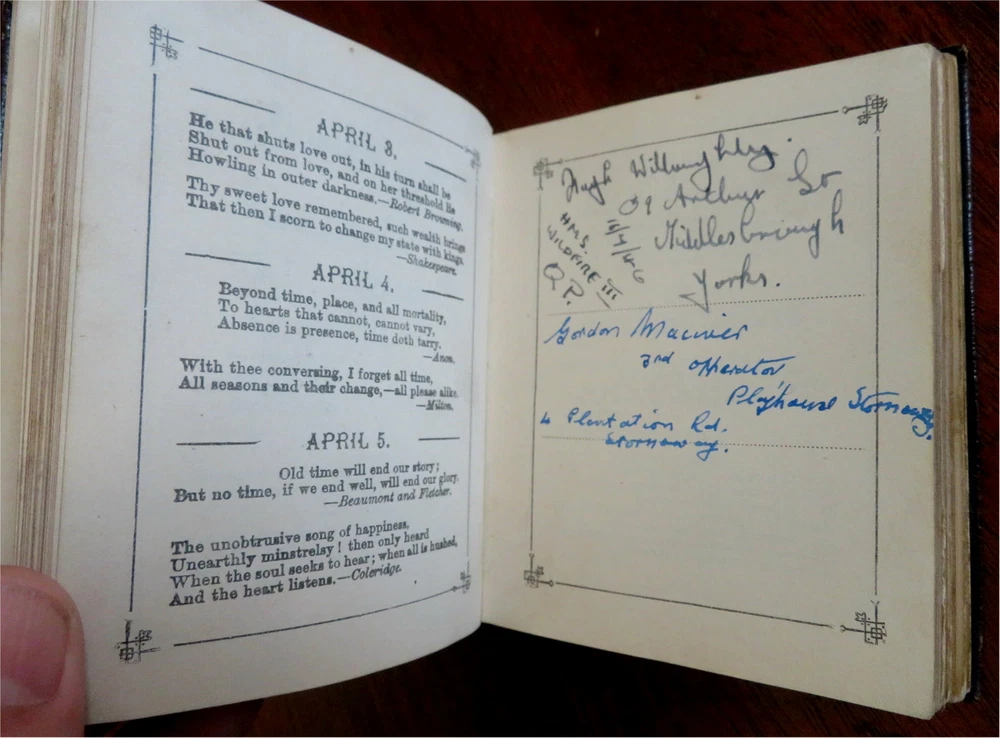 APRIL 3.
He that shuts love out, in his turn shall be
Shut out from love, and on her threshold lie
Howling in outer darkness.—Robert Browning.
Thy sweet love remembered, such wealth brings
That then I scorn to change my state with kings.
—Shakespeare.
APRIL 4.
Beyond time, place, and all mortality,
To hearts that cannot, cannot vary,
Absence is presence, time doth tarry.
—Anon.
With thee conversing, I forget all time,
All seasons and their change,—all please alike.
—Milton.
APRIL 5.
Old time will end our story;
But no time, if we end well, will end our glory.
—Beaumont and Fletcher.
The unobtrusive song of happiness,
Unearthly minstrelsy! then only heard
When the soul seeks to hear; when all is hushed,
And the heart listens.—Coleridge.
Hugh Willoughby.
39 Arthur St
Middlesbrough
Yorks.
HMS
WILDFIRE III
Q.P.
Gordon Maciver
3rd operator
Playhouse Stornoway.
4 Plantation Rd.
Stornoway.